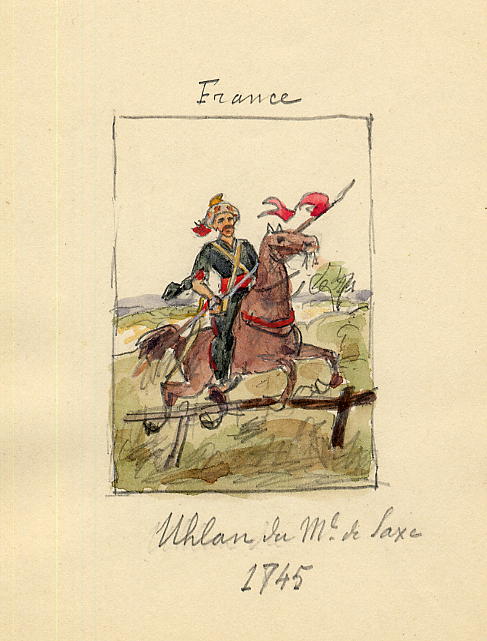 France
Uhlan du Mal de Saxe
1745